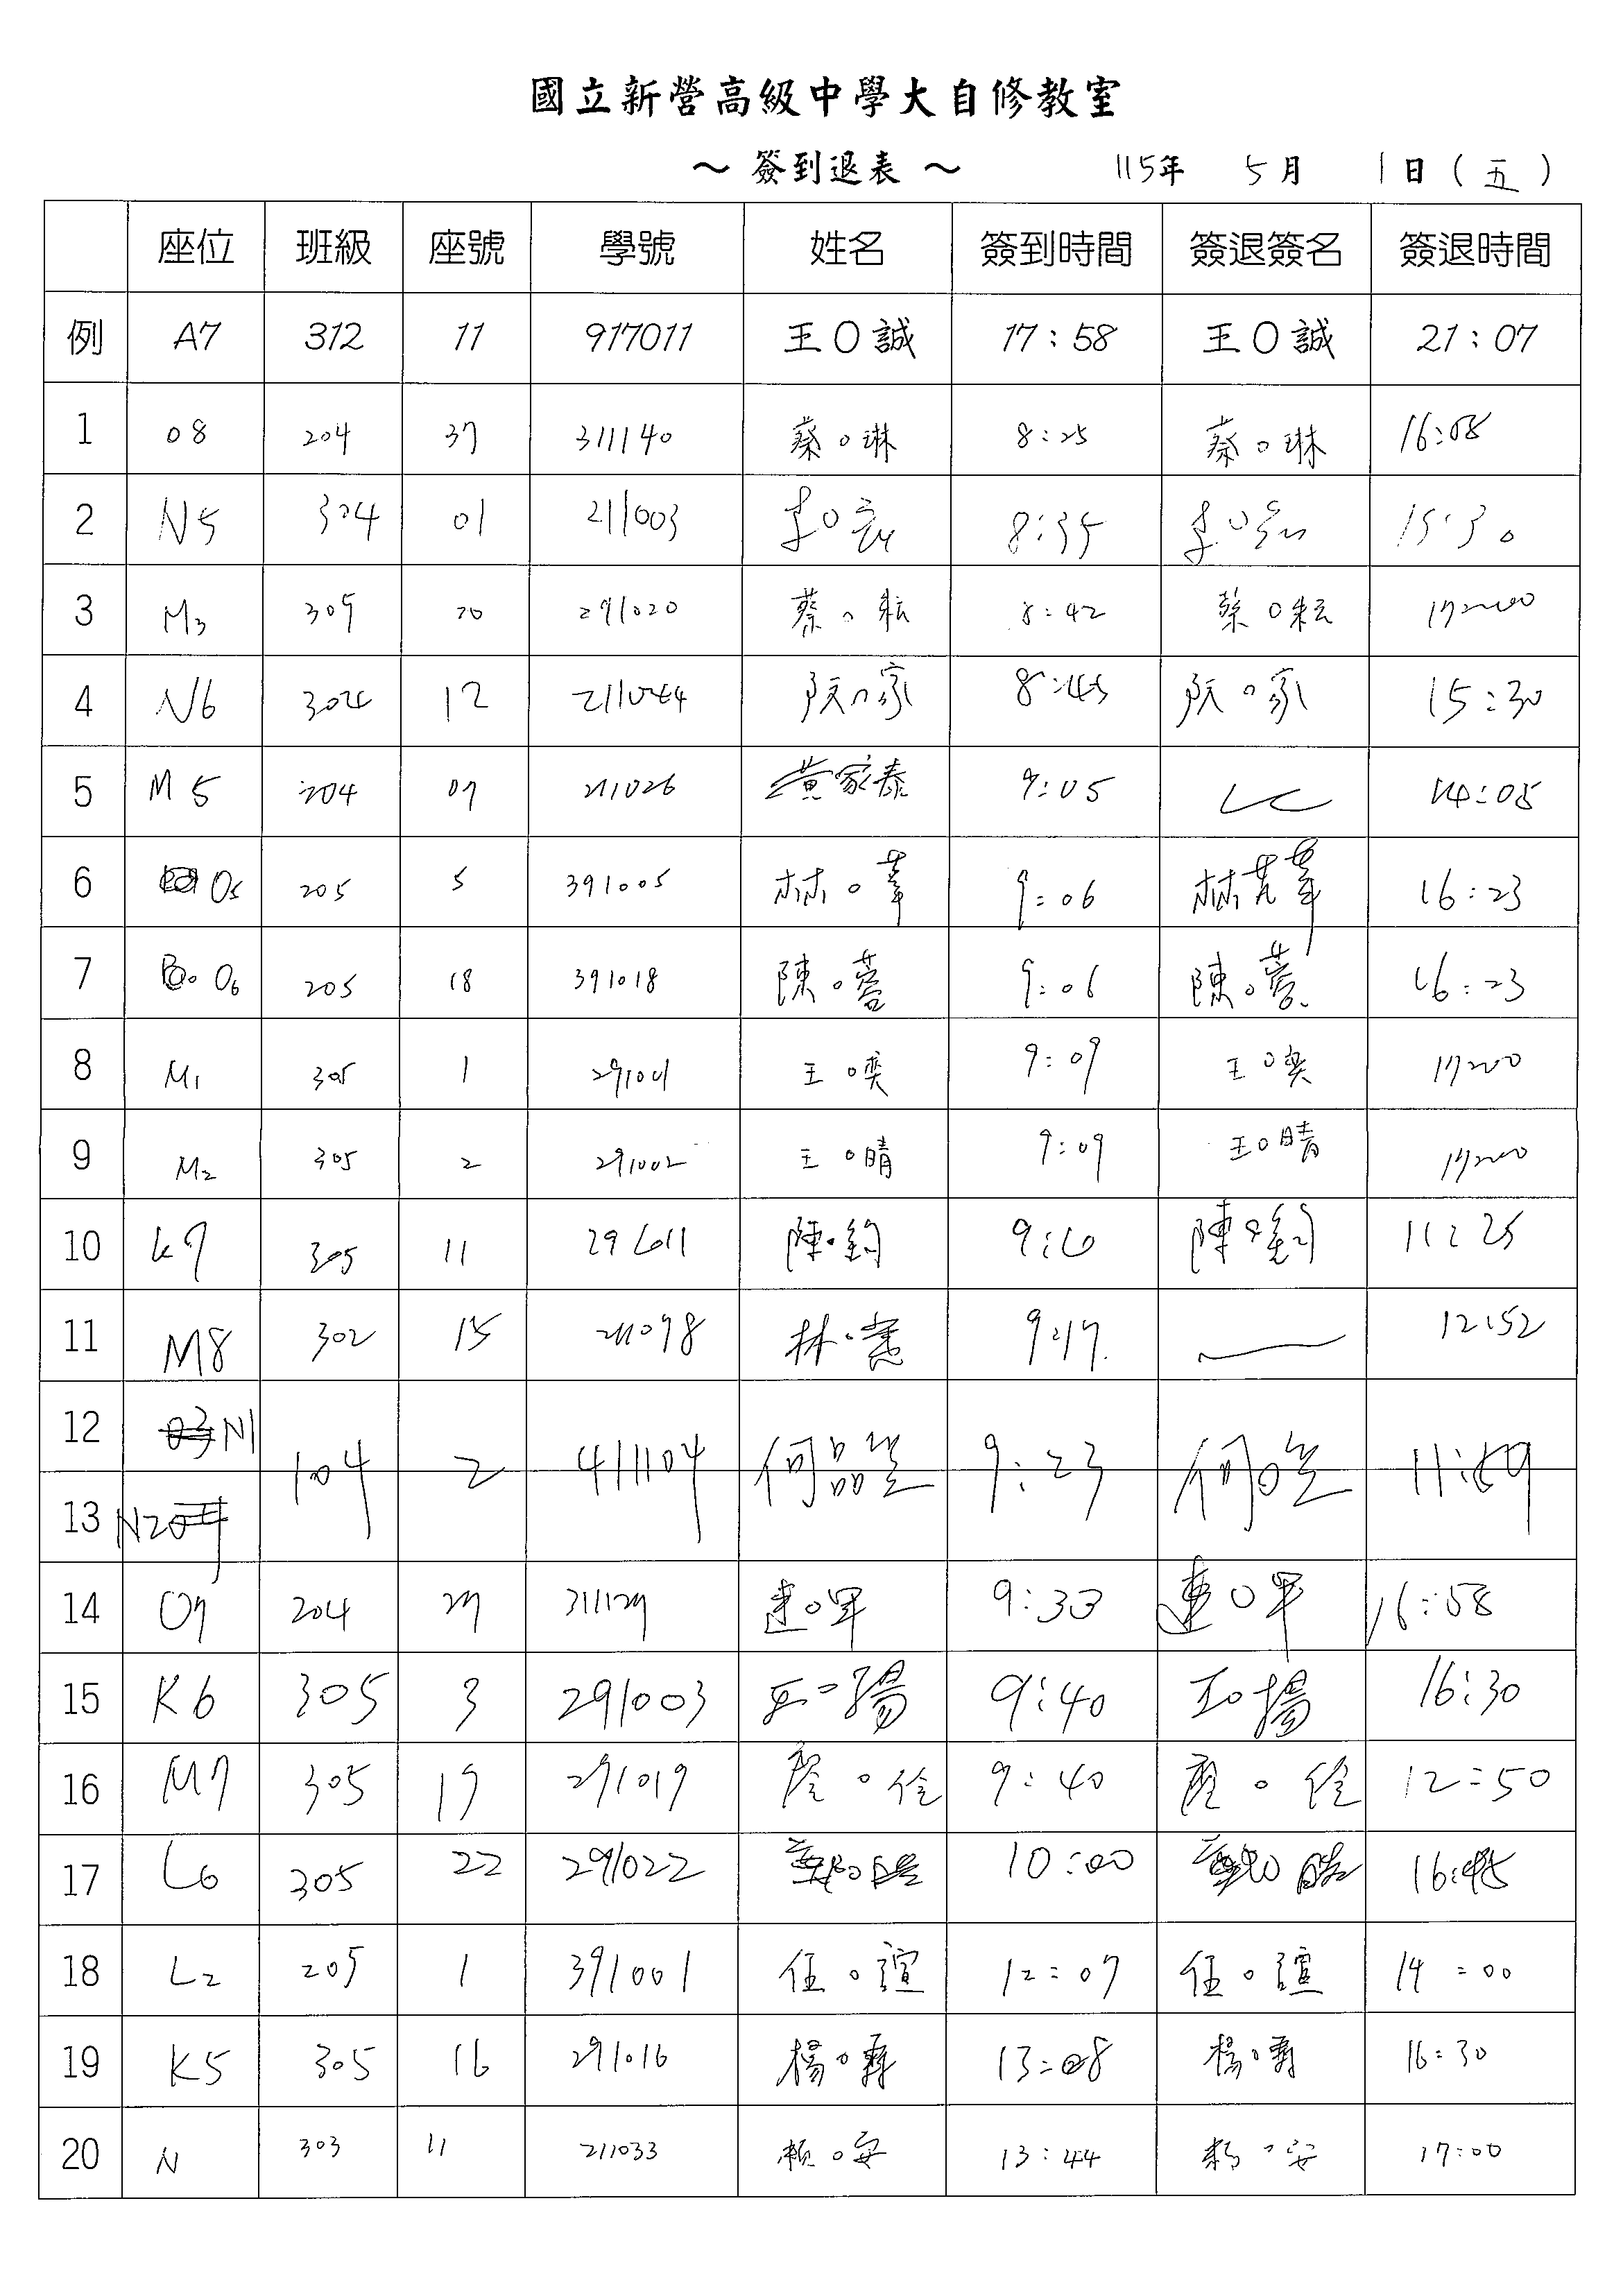 國立新營高級中學大自修教室
～ 簽到退表 ～ 115年 5月 1日(五)
座位 班級 座號 學號 姓名 簽到時間 簽退簽名 簽退時間
例 A7 312 11 917011 王O誠 17:58 王O誠 21:07
1 08 204 37 311140 蔡O琳 8:25 蔡O琳 16:08
2 N5 304 01 211003 李O 8:35 李O 15:30
3 M3 305 20 291020 蔡O耘 8:42 蔡O耘 17:00
4 N6 304 12 211044 阮O家 8:45 阮O家 15:30
5 M5 204 07 211026 黃家泰 9:05 14:05
6 O5 205 5 391005 林O葦 9:06 林 葦 16:23
7 O6 205 18 391018 陳O蓉 9:06 陳O蓉 16:23
8 M1 305 1 291001 王O奕 9:09 王O奕 17:00
9 M2 305 2 291002 王O晴 9:09 王O晴 17:00
10 K7 305 11 291011 陳O鈞 9:10 陳O鈞 11:25
11 M8 302 15 211098 林O憲 9:17 12:52
12 N1 104 2 411104 何品 9:23 何O 11:59
13 N2
14 O7 204 27 311127 連O 9:33 連O 16:58
15 K6 305 3 291003 王O揚 9:40 王O揚 16:30
16 M7 305 19 291019 O佺 9:40 O佺 12:50
17 L6 305 22 291022 10:00 16:45
18 L2 205 1 391001 任O諠 12:07 任O諠 14:00
19 K5 305 16 291016 楊O霖 13:08 楊O 16:30
20 N 303 11 211033 賴O安 13:44 賴O安 17:00